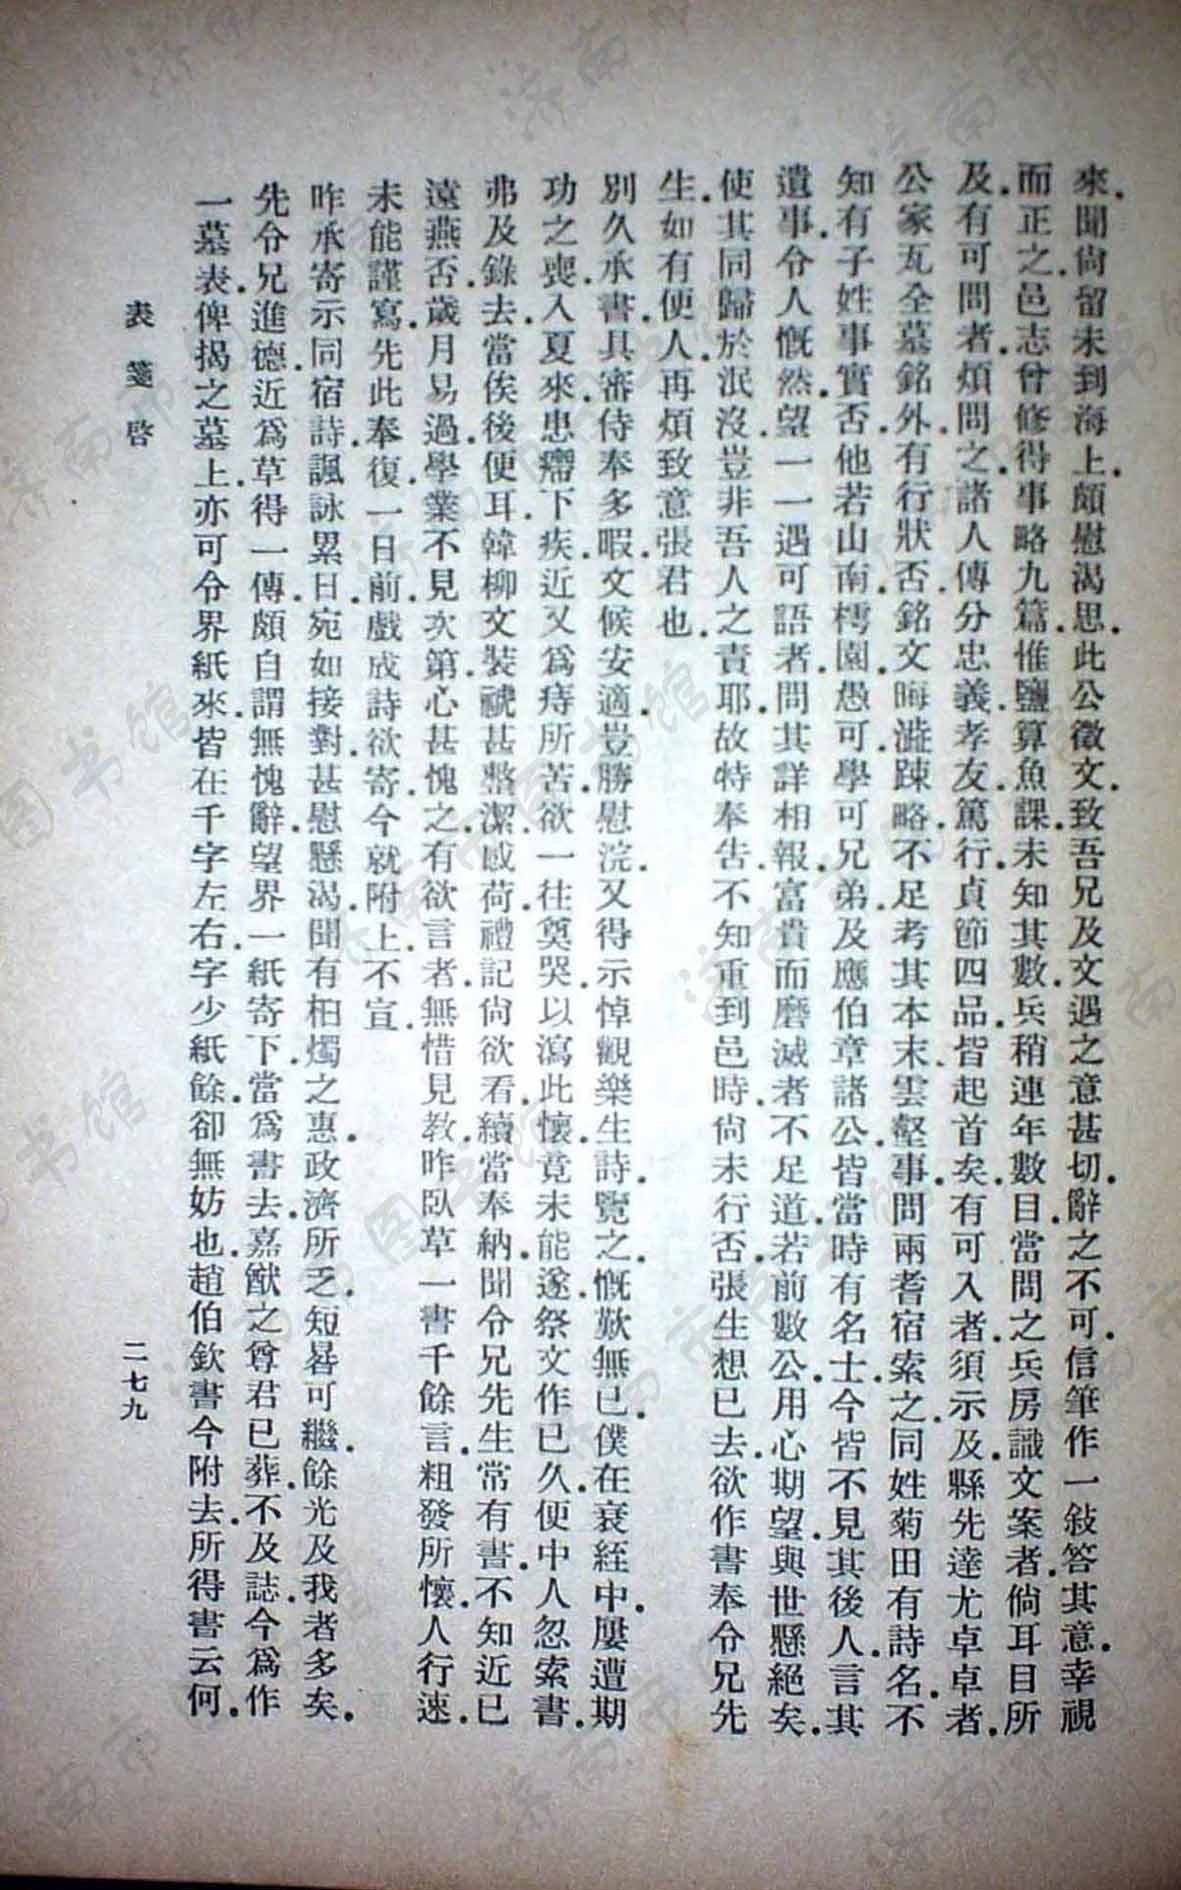 來.聞尙留未到海上.頗慰渴思.此公徵文.致吾兄及文遇之意甚切.辭之不可.信筆作一敍答其意.幸視
而正之.邑志曾修得事略九篇.惟鹽算魚課.未知其數.兵稍連年數目.當問之兵房識文案者.倘耳目所
及.有可問者.煩問之.諸人傳分忠義.孝友.篤行.貞節四品.皆起首矣.有可入者.須示及.縣先達尤卓卓者.
公家瓦全墓銘外.有行狀否.銘文晦澁踈略.不足考其本末.雲壑事.問兩耆宿索之.同姓菊田有詩名.不
知有子姓事實否.他若山南.樗園.愚可.學可.兄弟.及應伯章諸公.皆當時有名士.今皆不見其後人.言其
遺事.令人慨然.望一一遇可語者.問其詳相報.富貴而磨滅者.不足道.若前數公.用心期望.與世懸絕矣.
使其同歸於泯沒.豈非吾人之責耶.故特奉吿.不知重到邑時.尙未行否.張生想已去.欲作書奉令兄先
生.如有便人.再煩致意張君也.
別久承書.具審侍奉多暇.文候安適.豈勝慰浣.又得示悼觀樂生詩.覽之.慨歎無已.僕在衰絰中.屢遭期
功之喪.入夏來.患癤下疾.近又爲痔所苦.欲一往奠哭.以瀉此懷.竟未能遂.祭文作已久.便中人忽索書.
弗及錄去.當俟後便耳.韓柳文裝褫甚整潔.感荷.禮記尙欲看.續當奉納.聞令兄先生常有書.不知近已
遠燕否.歲月易過.學業不見次第.心甚愧之.有欲言者.無惜見教.昨臥草一書千餘言.粗發所懷.人行速.
未能謹寫.先此奉復.一日前.戲成詩欲寄.今就附上.不宣.
昨承寄示同宿詩.諷詠累日.宛如接對.甚慰懸渴.聞有桕燭之惠.政濟所乏.短晷可繼.餘光及我者多矣.
先令兄進德.近爲草得一傳.頗自謂無愧辭.望界一紙寄下.當爲書去.嘉猷之尊君已葬.不及誌.今爲作
一墓表.俾揭之墓上.亦可令界紙來.皆在千字左右.字少紙餘.卻無妨也.趙伯欽書今附去.所得書云何.
表箋啓
二七九